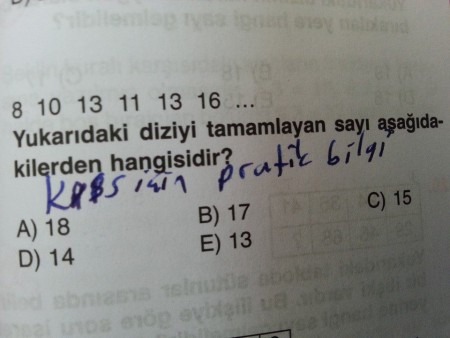 8 10 13 11 13 16 ...
Yukarıdaki diziyi tamamlayan sayı aşağıda-
kilerden hangisidir?
için pratik bilgi
A) 18 B) 17 C) 15
D) 14 E) 13